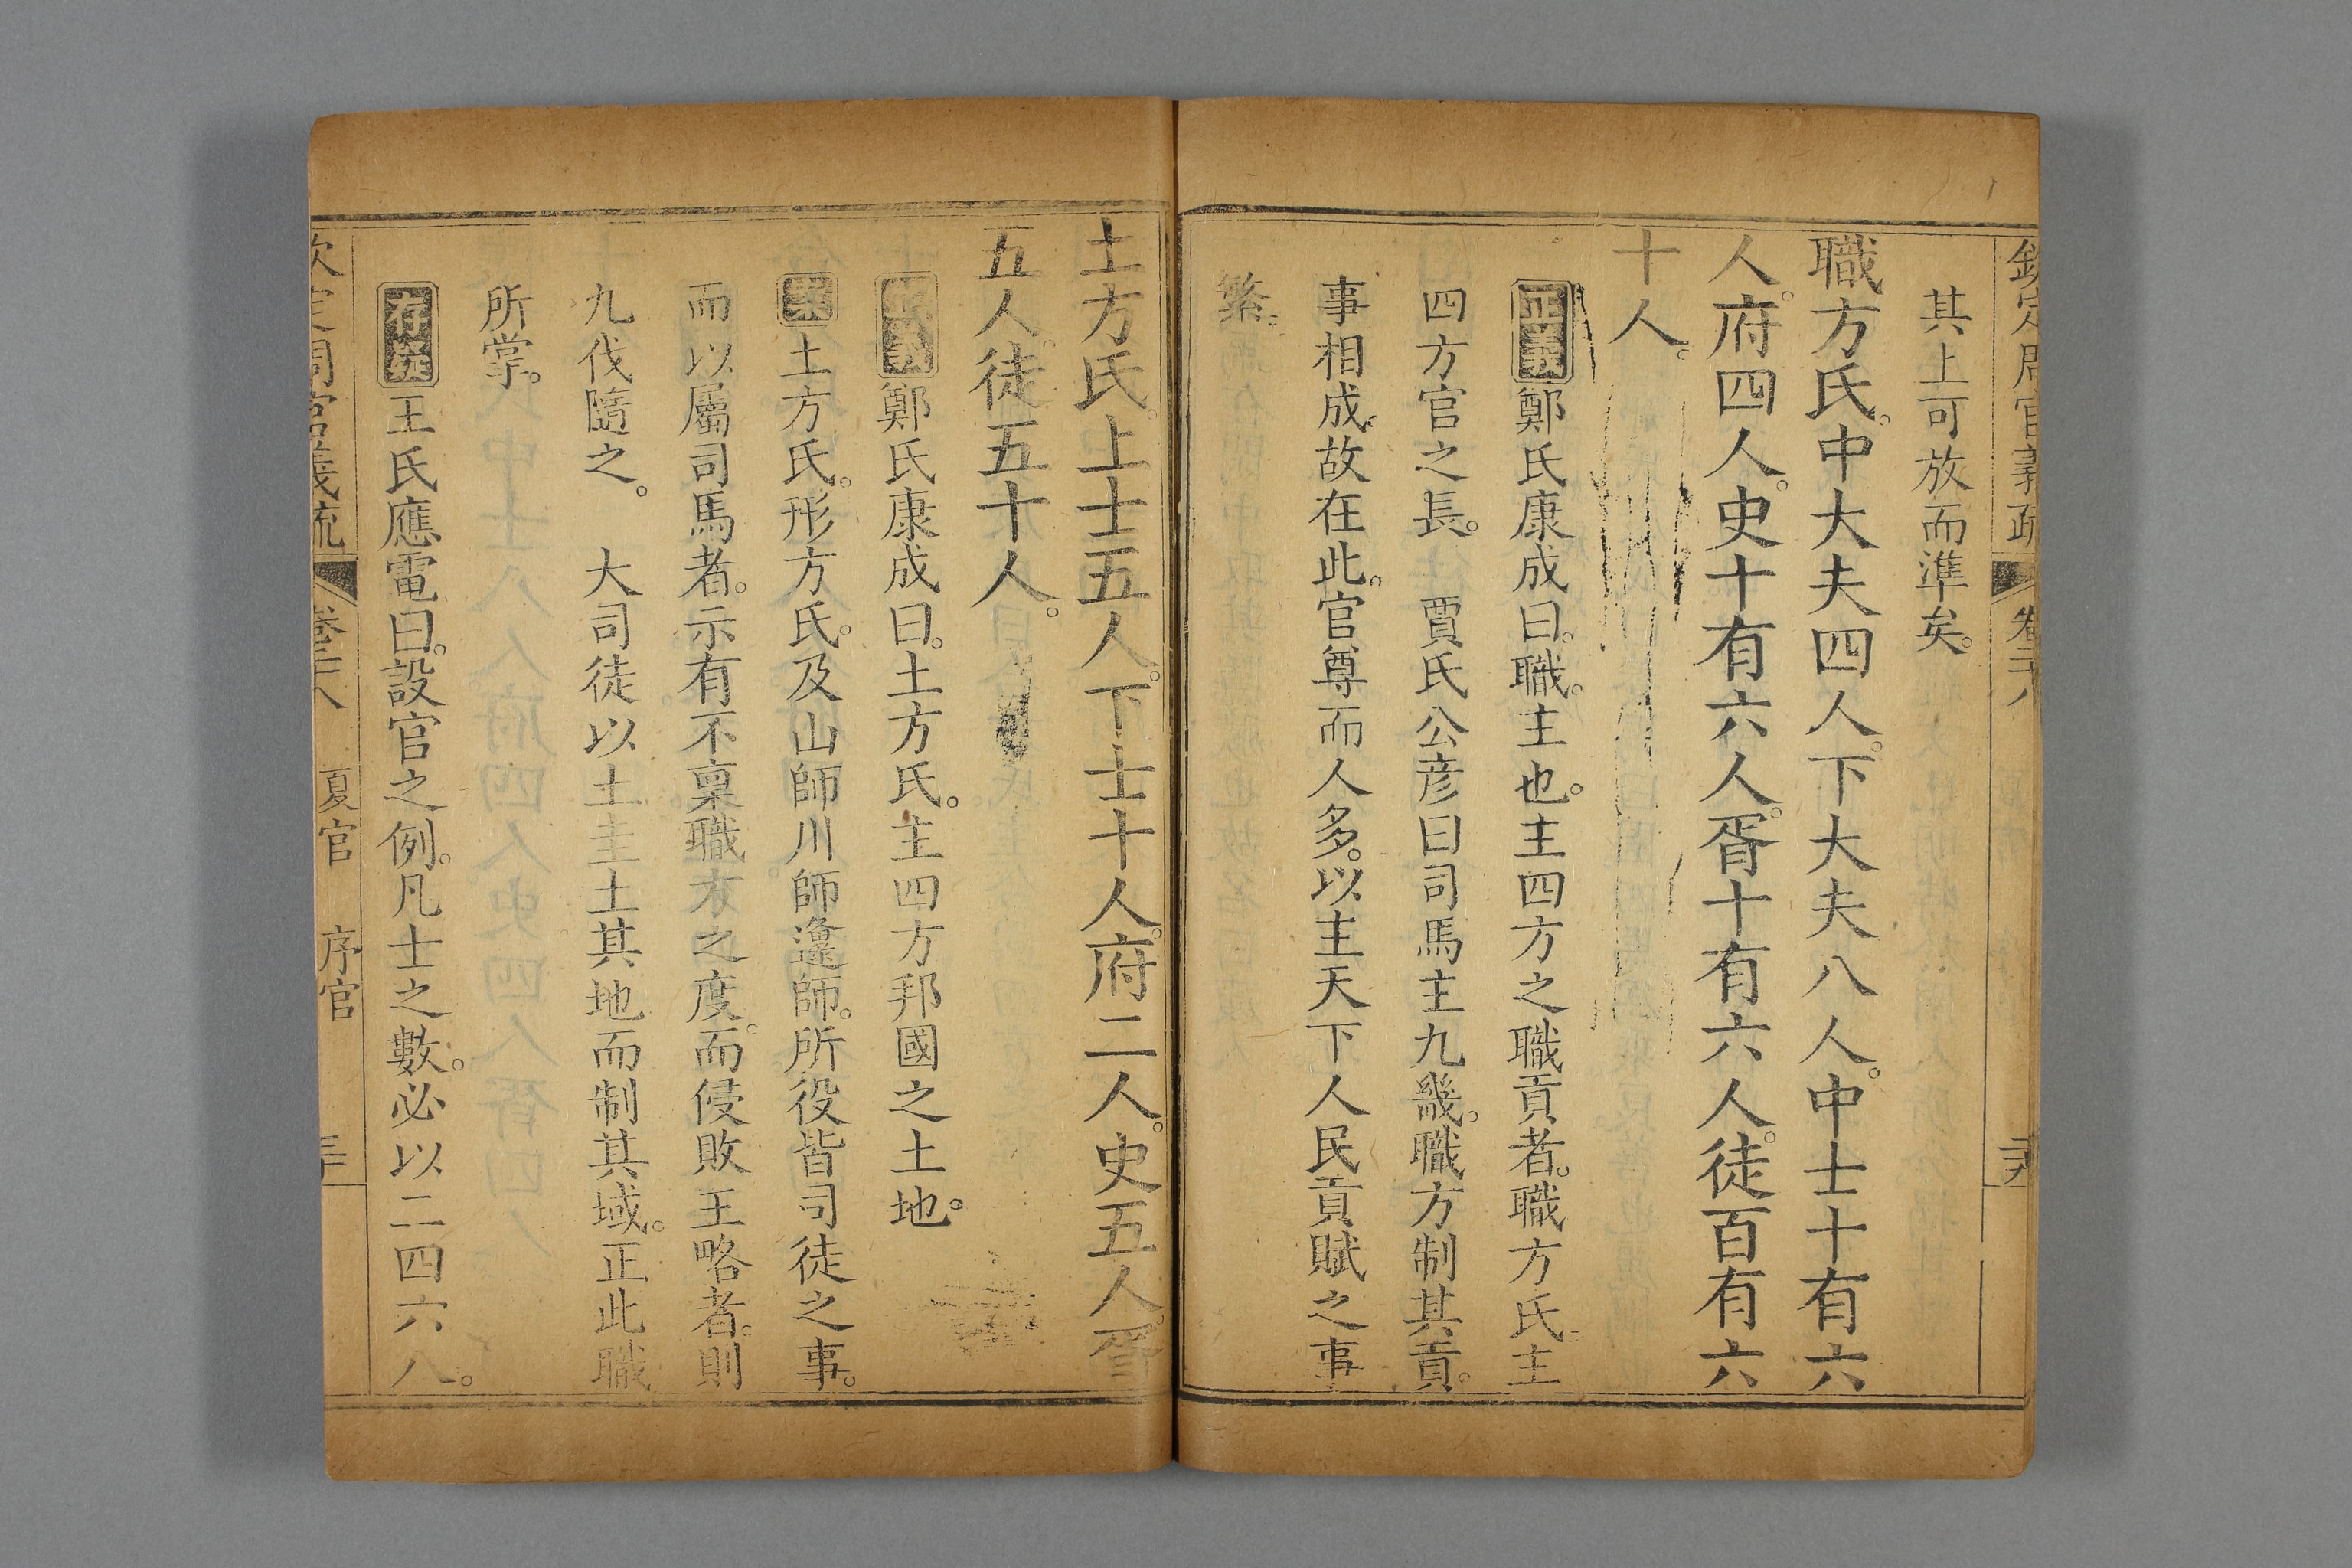 欽定周官義疏 卷二十八
其上可放而準矣。
職方氏。中大夫四人。下大夫八人。中士十有六
人。府四人。史十有六人。胥十有六人。徒百有六
十人。
正義鄭氏康成曰。職。主也。主四方之職貢者。職方氏。主
四方官之長。 賈氏公彦曰司馬主九畿。職方制其貢。
事相成。故在此。官尊而人多。以主天下人民貢賦之事
繁。
土方氏。上士五人。下士十人。府二人。史五人。胥
五人。徒五十人。
正義鄭氏康成曰。土方氏。主四方邦國之土地。
案土方氏。形方氏。及山師川師邍師。所役皆司徒之事。
而以屬司馬者。示有不稟職方之度。而侵敗王略者。則
九伐隨之。 大司徒以土圭土其地而制其域。正此職
所掌。
存疑王氏應電曰。設官之例。凡士之數。必以二四六八。
欽定周官義疏 卷二十八 夏官 序官 三十